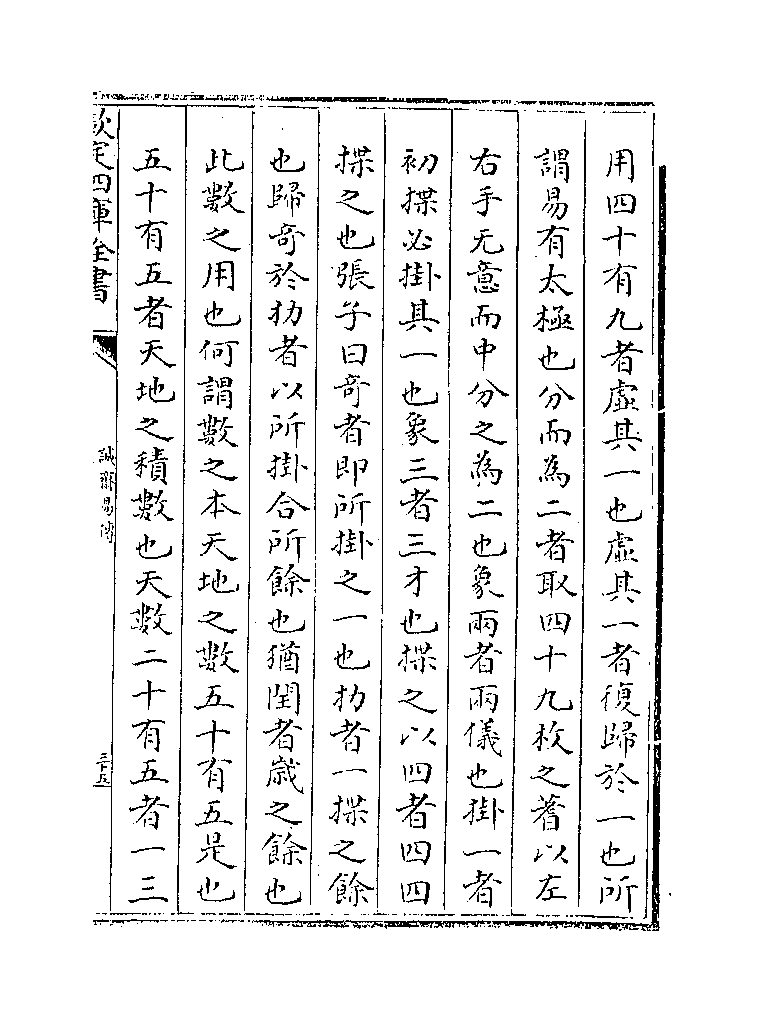 用四十有九者虛其一也虛其一者復歸於一也所
謂易有太極也分而為二者取四十九枚之蓍以左
右手无意而中分之為二也象兩者兩儀也掛一者
初揲必掛其一也象三者三才也揲之以四者四四
揲之也張子曰奇者即所掛之一也扐者一揲之餘
也歸奇於扐者以所掛合所餘也猶閏者歲之餘也
此數之用也何謂數之本天地之數五十有五是也
五十有五者天地之積數也天數二十有五者一三
欽定四庫全書
誠齋易傳
三十五